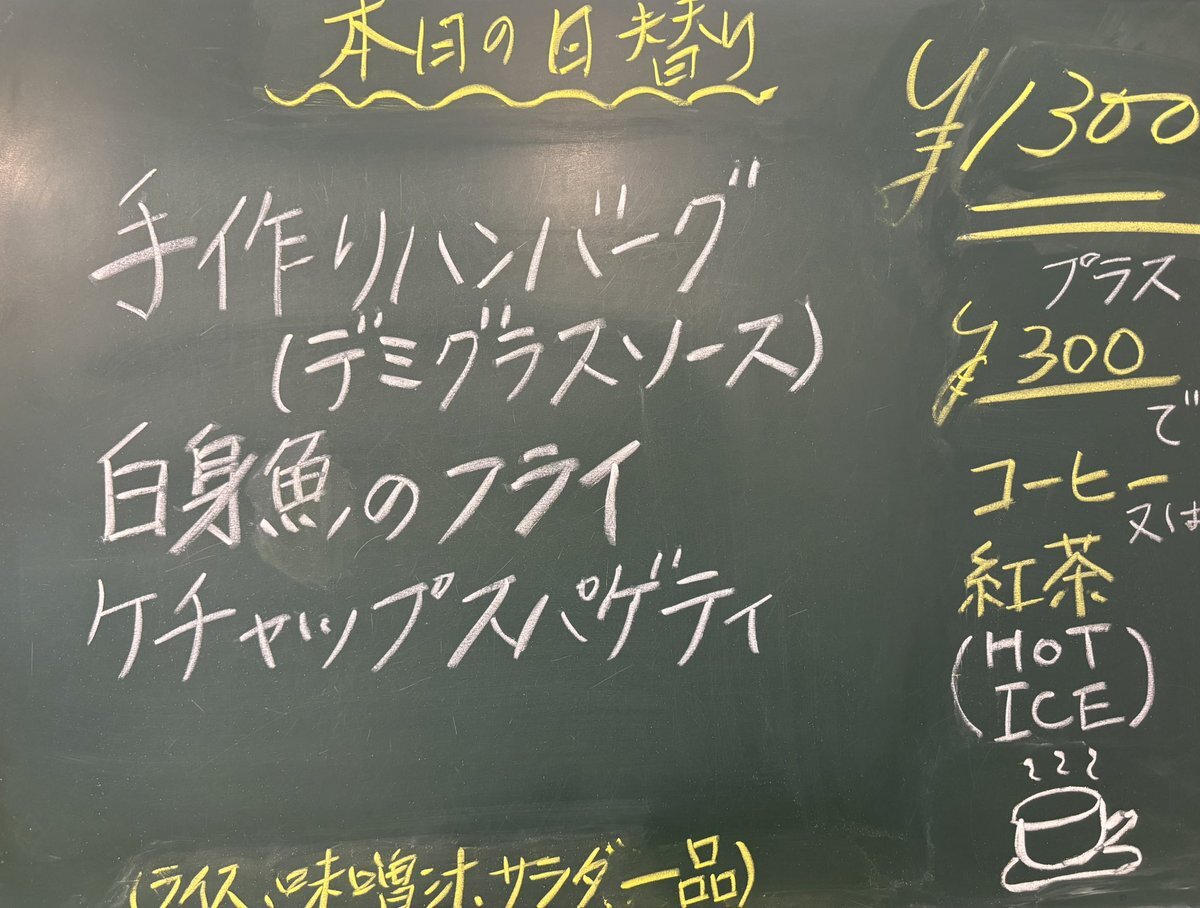 本日の日替り
手作りハンバーグ
(デミグラスソース)
白身魚のフライ
ケチャップスパゲティ
(ライス、味噌汁、サラダ、一品)
¥1300
プラス
¥300
で
コーヒー
又は
紅茶
(HOT
ICE)